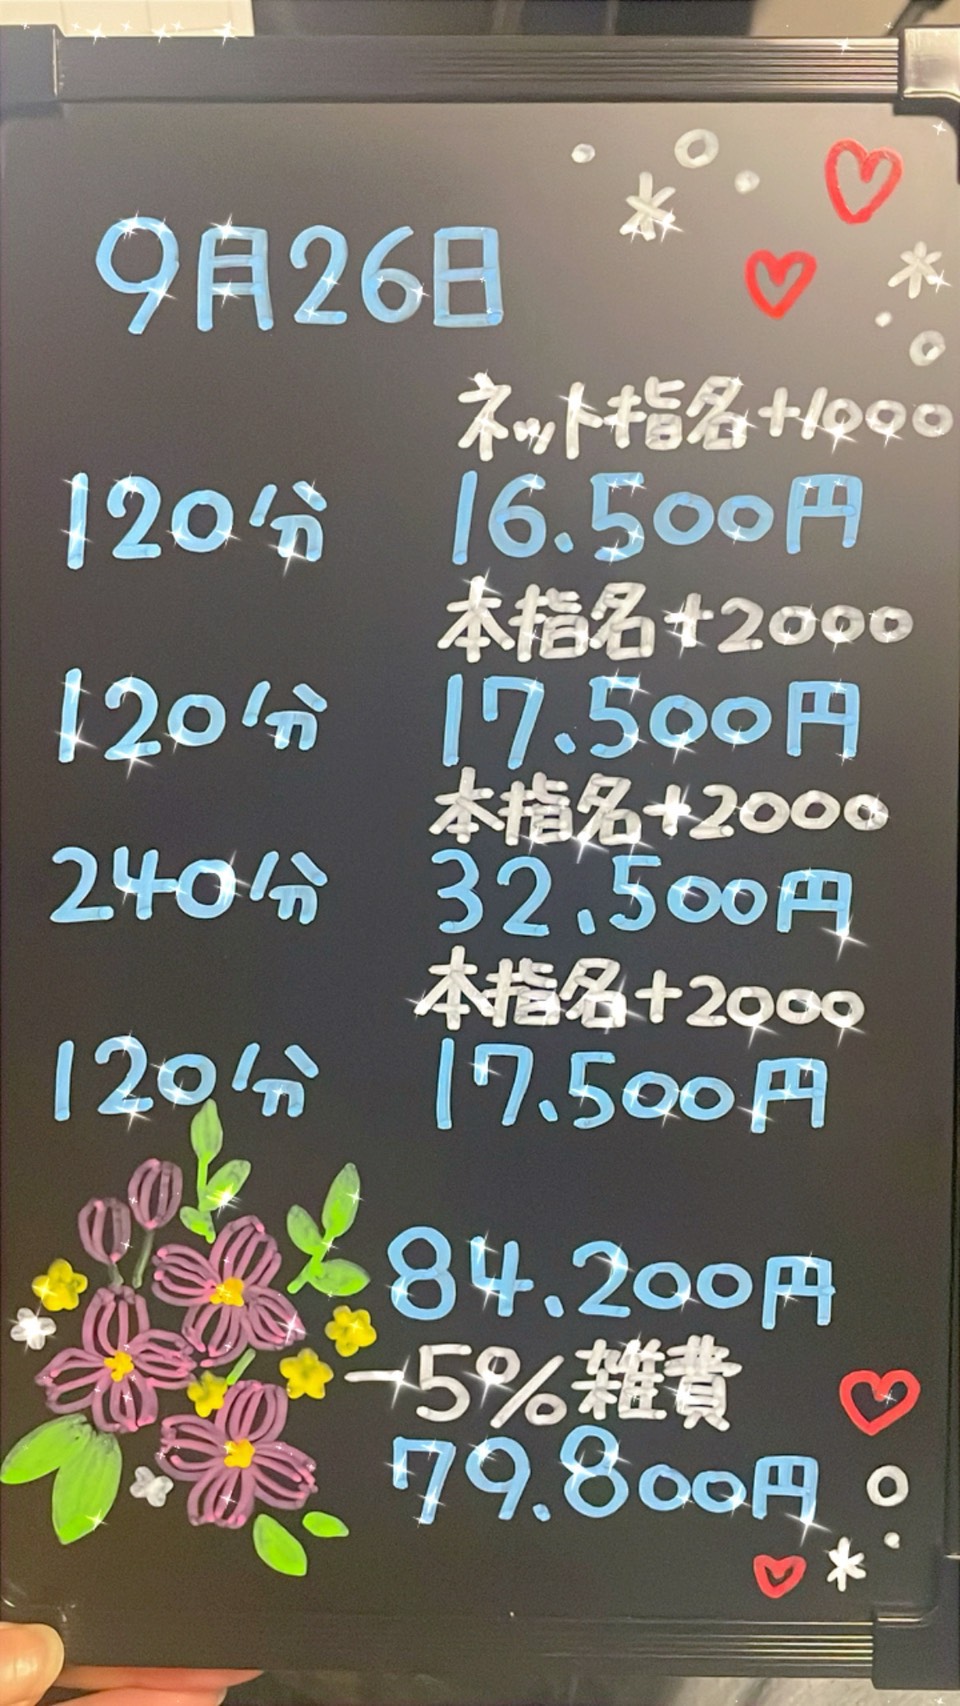 9月26日
ネット指名+1000
120分 16.500円
本指名+2000
120分 17.500円
本指名+2000
240分 32.500円
本指名+2000
120分 17.500円
84.200円
-5%雑費
79.800円